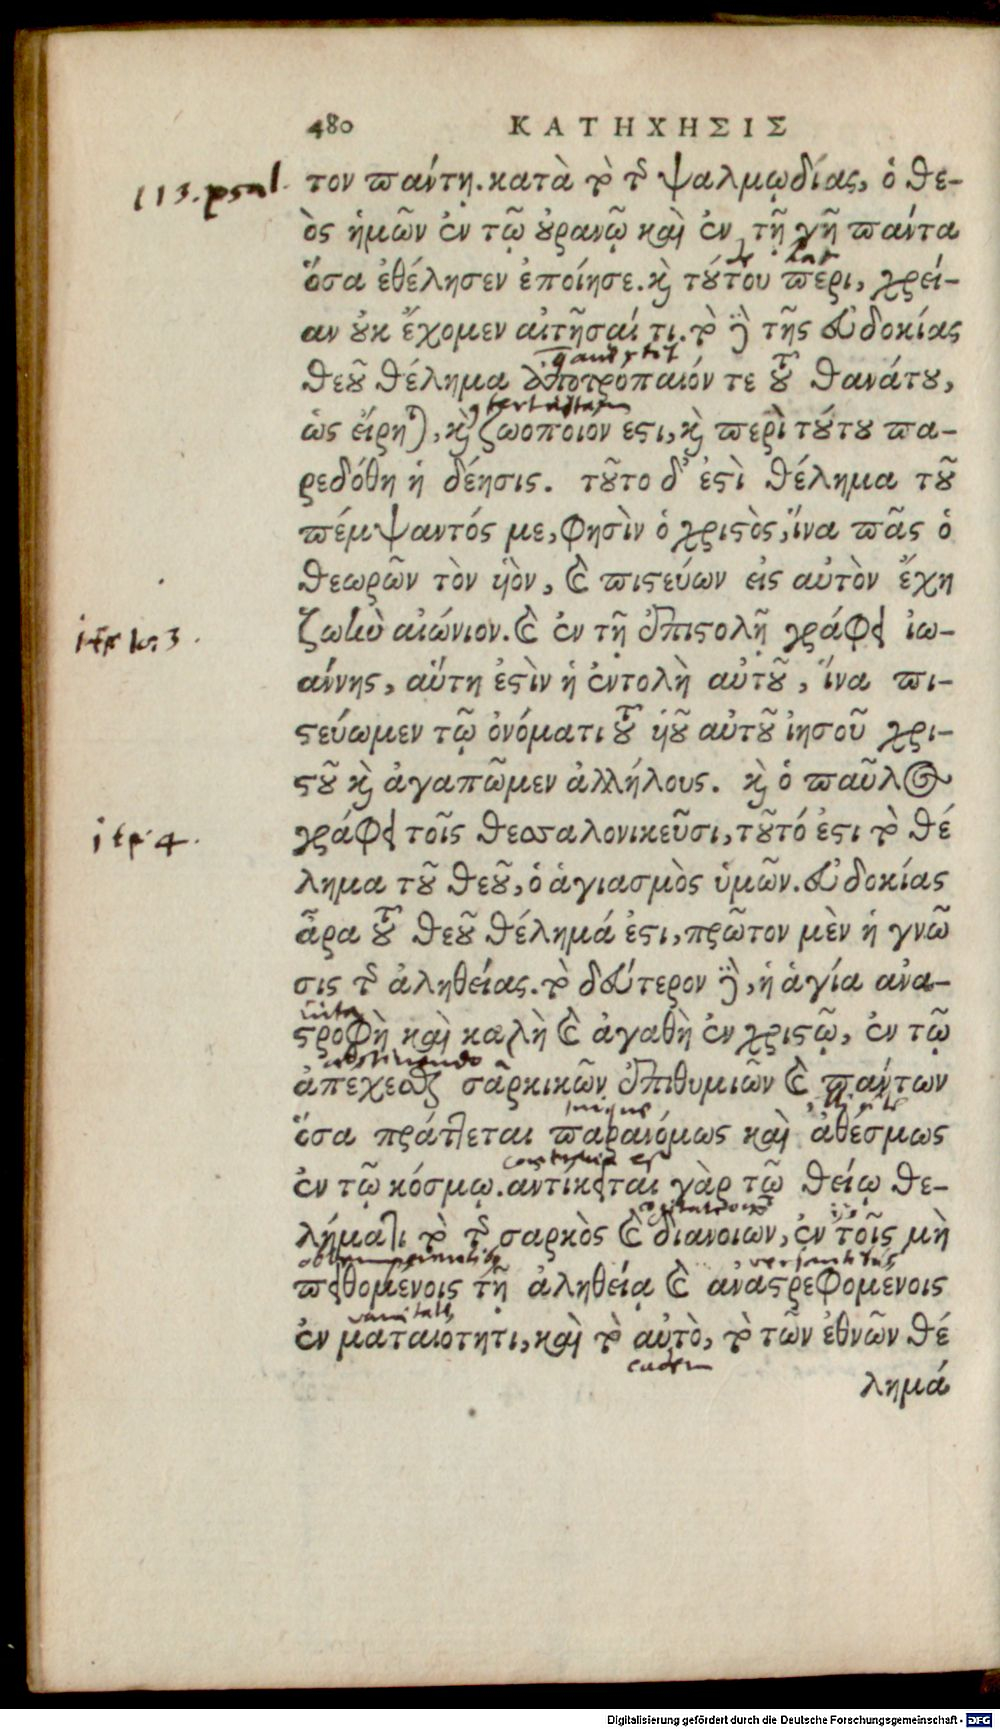 480 ΚΑΤΗΧΗΣΙΣ
113. psal.
τον πάντῃ. κατὰ τὸ τῆς ψαλμῳδίας, ὁ θε-
ὸς ἡμῶν ἐν τῷ οὐρανῷ καὶ ἐν τῇ γῇ πάντα
ὅσα ἐθέλησεν ἐποίησε. καὶ τούτου πέρι, χρεί-
αν οὐκ ἔχομεν αἰτῆσαί τι. τὸ δὲ τῆς εὐδοκίας
θεοῦ θέλημα ἀποτρόπαιόν τε τοῦ θανάτου,
ὡς εἴρηται, καὶ ζωοποιον εστι, καὶ περὶ τούτου πα-
ρεδόθη ἡ δέησις. τοῦτο δ' ἐστὶ θέλημα τοῦ
πέμψαντός με, φησὶν ὁ χριστὸς, ἵνα πᾶς ὁ
θεωρῶν τὸν υἱὸν, καὶ πιστεύων εἰς αὐτὸν ἔχῃ
ζωὴν αἰώνιον. καὶ ἐν τῇ ἐπιστολῇ γράφει ἰω-
άννης, αὕτη ἐστὶν ἡ ἐντολὴ αὐτοῦ, ἵνα πι-
στεύωμεν τῷ ὀνόματι τοῦ υἱοῦ αὐτοῦ ἰησοῦ χρι-
στοῦ καὶ ἀγαπῶμεν ἀλλήλους. καὶ ὁ παῦλος
4.
γράφει τοῖς θεσσαλονικεῦσι, τοῦτό ἐστι τὸ θέ
λημα τοῦ θεοῦ, ὁ ἁγιασμὸς ὑμῶν. εὐδοκίας
ἆρα τοῦ θεοῦ θέλημά ἐστι, πρῶτον μὲν ἡ γνῶ
σις τῆς ἀληθείας. τὸ δεύτερον δὲ, ἡ ἁγία ἀνα-
στροφὴ καὶ καλὴ καὶ ἀγαθὴ ἐν χριστῷ, ἐν τῷ
abstinendo
ἀπεχεσθαι σαρκικῶν ἐπιθυμιῶν καὶ πάντων
ὅσα πράττεται παρανόμως καὶ ἀθέσμως
ἐν τῷ κόσμῳ. αντίκειται γὰρ τῷ θείῳ θε-
λήματι τὸ τῆς σαρκὸς καὶ διανοιων, ἐν τοῖς μὴ
πειθομενοις τῇ ἀληθείᾳ καὶ ἀναστρεφομενοις
ἐν ματαιοτητι, καὶ τὸ αὐτὸ, τὸ τῶν ἐθνῶν θέ
λημά
Digitalisierung gefördert durch die Deutsche Forschungsgemeinschaft - DFG